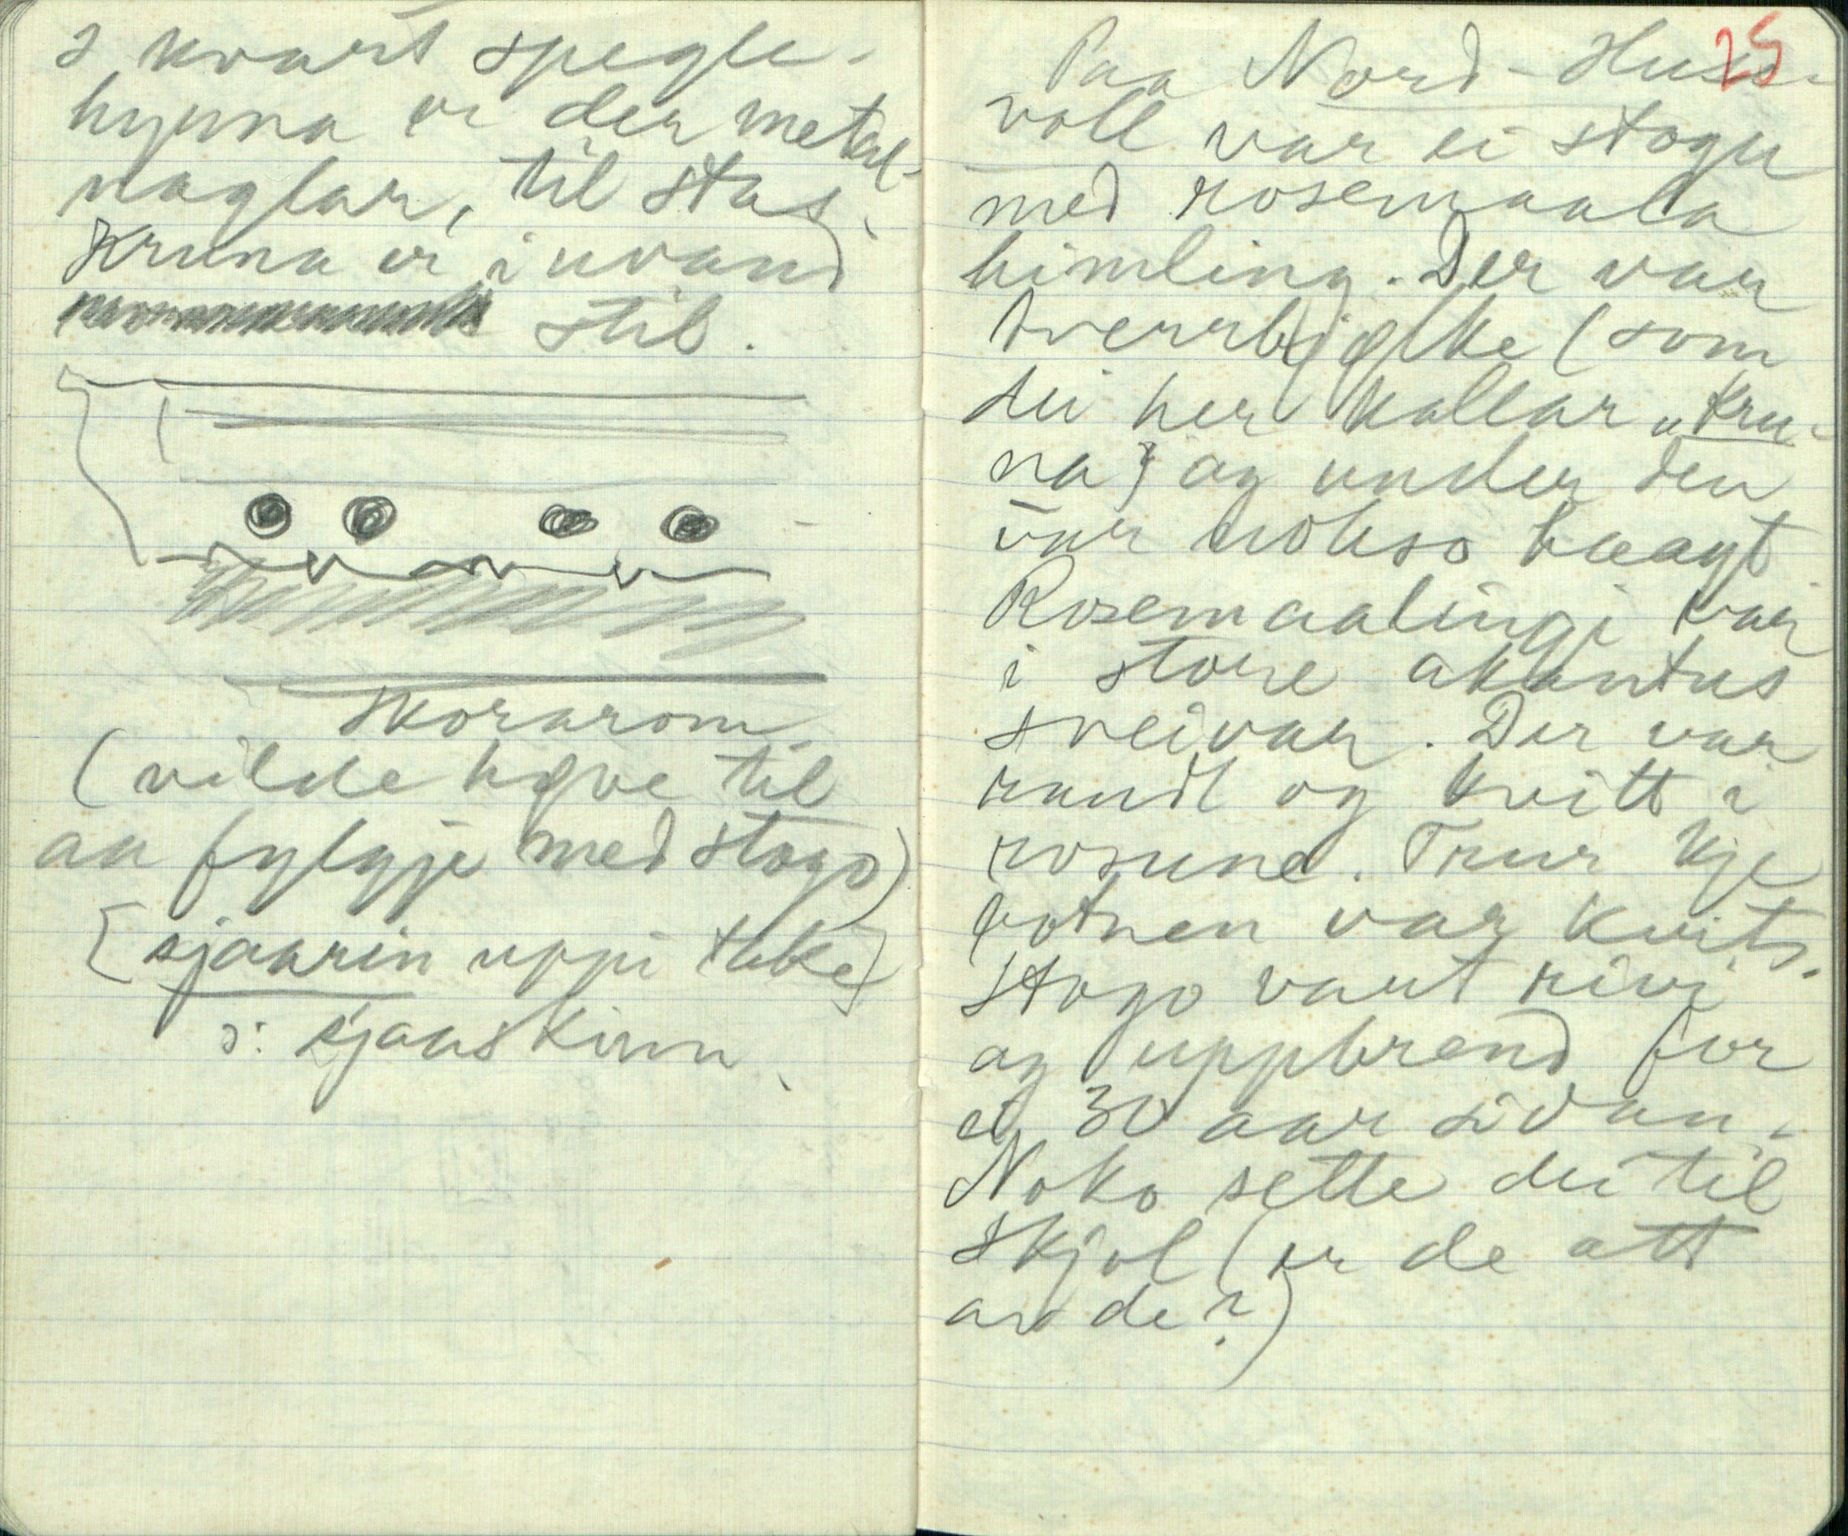 I kvart spegle-
hyrna er der metal-
naglar, til stas.
Kruna er i uvand
stil.
skorarom
(vilde høve til
aa fylgje med stogo)
[sjaarin uppi take]
ɔ: sjaaskinn.
25
Paa Nord-Huse-
voll var ei stogu
med rosemaala
himling. Der var
tverrbjelke (som
dei her kallar „kru-
na") og under den
var nokso laagt.
Rosemaalingi var
i store akantus
sveivar. Der var
raudt og kvitt i
rosune. Trur kje
botnen var kvit.
Stogo vart rivi
og uppbrend for
et 30 aar sidan.
Noko sette dei til
skjol (er de att
av de?)